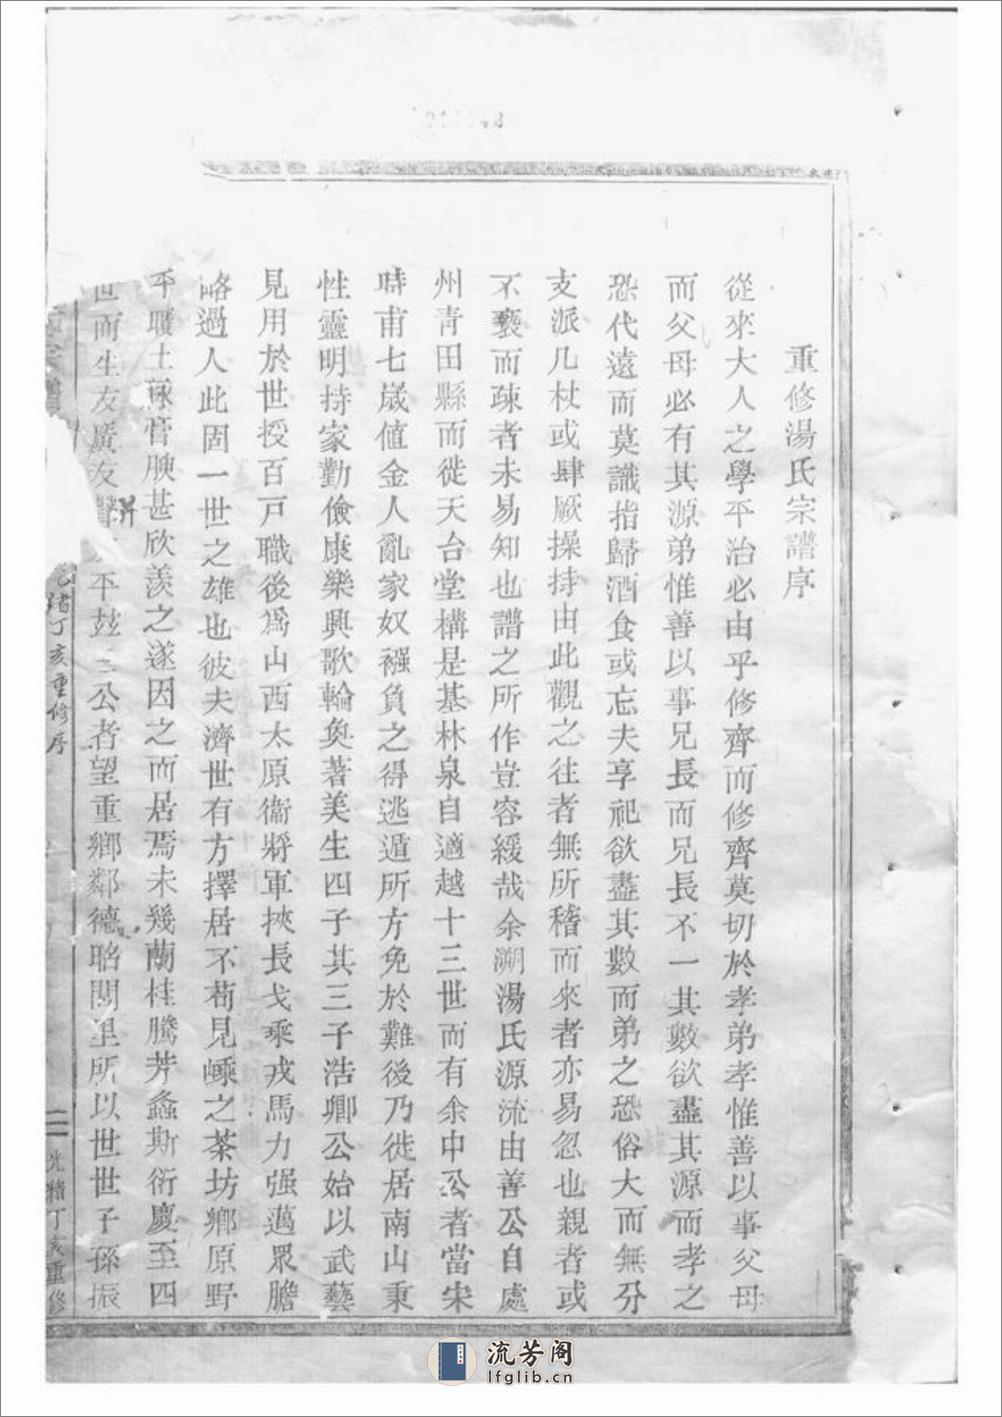 重修湯氏宗譜序
從來大人之學平治必由乎修齊而修齊莫切於孝弟孝惟善以事父母
而父母必有其源弟惟善以事兄長而兄長不一其數欲盡其源而孝之
恐代遠而莫識指歸酒食或忘夫享祀欲盡其數而弟之恐俗大而無分
支派几杖或肆厥操持由此觀之往者無所稽而來者亦易忽也親者或
不褻而疎者未易知也譜之所作豈容緩哉余溯湯氏源流由善公自處
州青田縣而徙天台堂構是基林泉自適越十三世而有余中公者當宋
時甫七歲值金人亂家奴襁負之得逃遁所方免於難後乃徙居南山秉
性靈明持家勤儉康樂興歌輪奐著美生四子其三子浩卿公始以武藝
見用於世授百戸職後爲山西太原衞將軍挾長戈乘戎馬力强邁眾膽
略過人此固一世之雄也彼夫濟世有方擇居不苟見嵊之茶坊鄉原野
平曠土脉膏腴甚欣羡之遂因之而居焉未幾蘭桂騰芳螽斯衍慶至四
世而生友廣友聲 平 三公者望重鄉鄰德昭閭里所以世世子孫振
光緒丁亥重修序
二
光緒丁亥重修
流芳阁
lfglib.cn